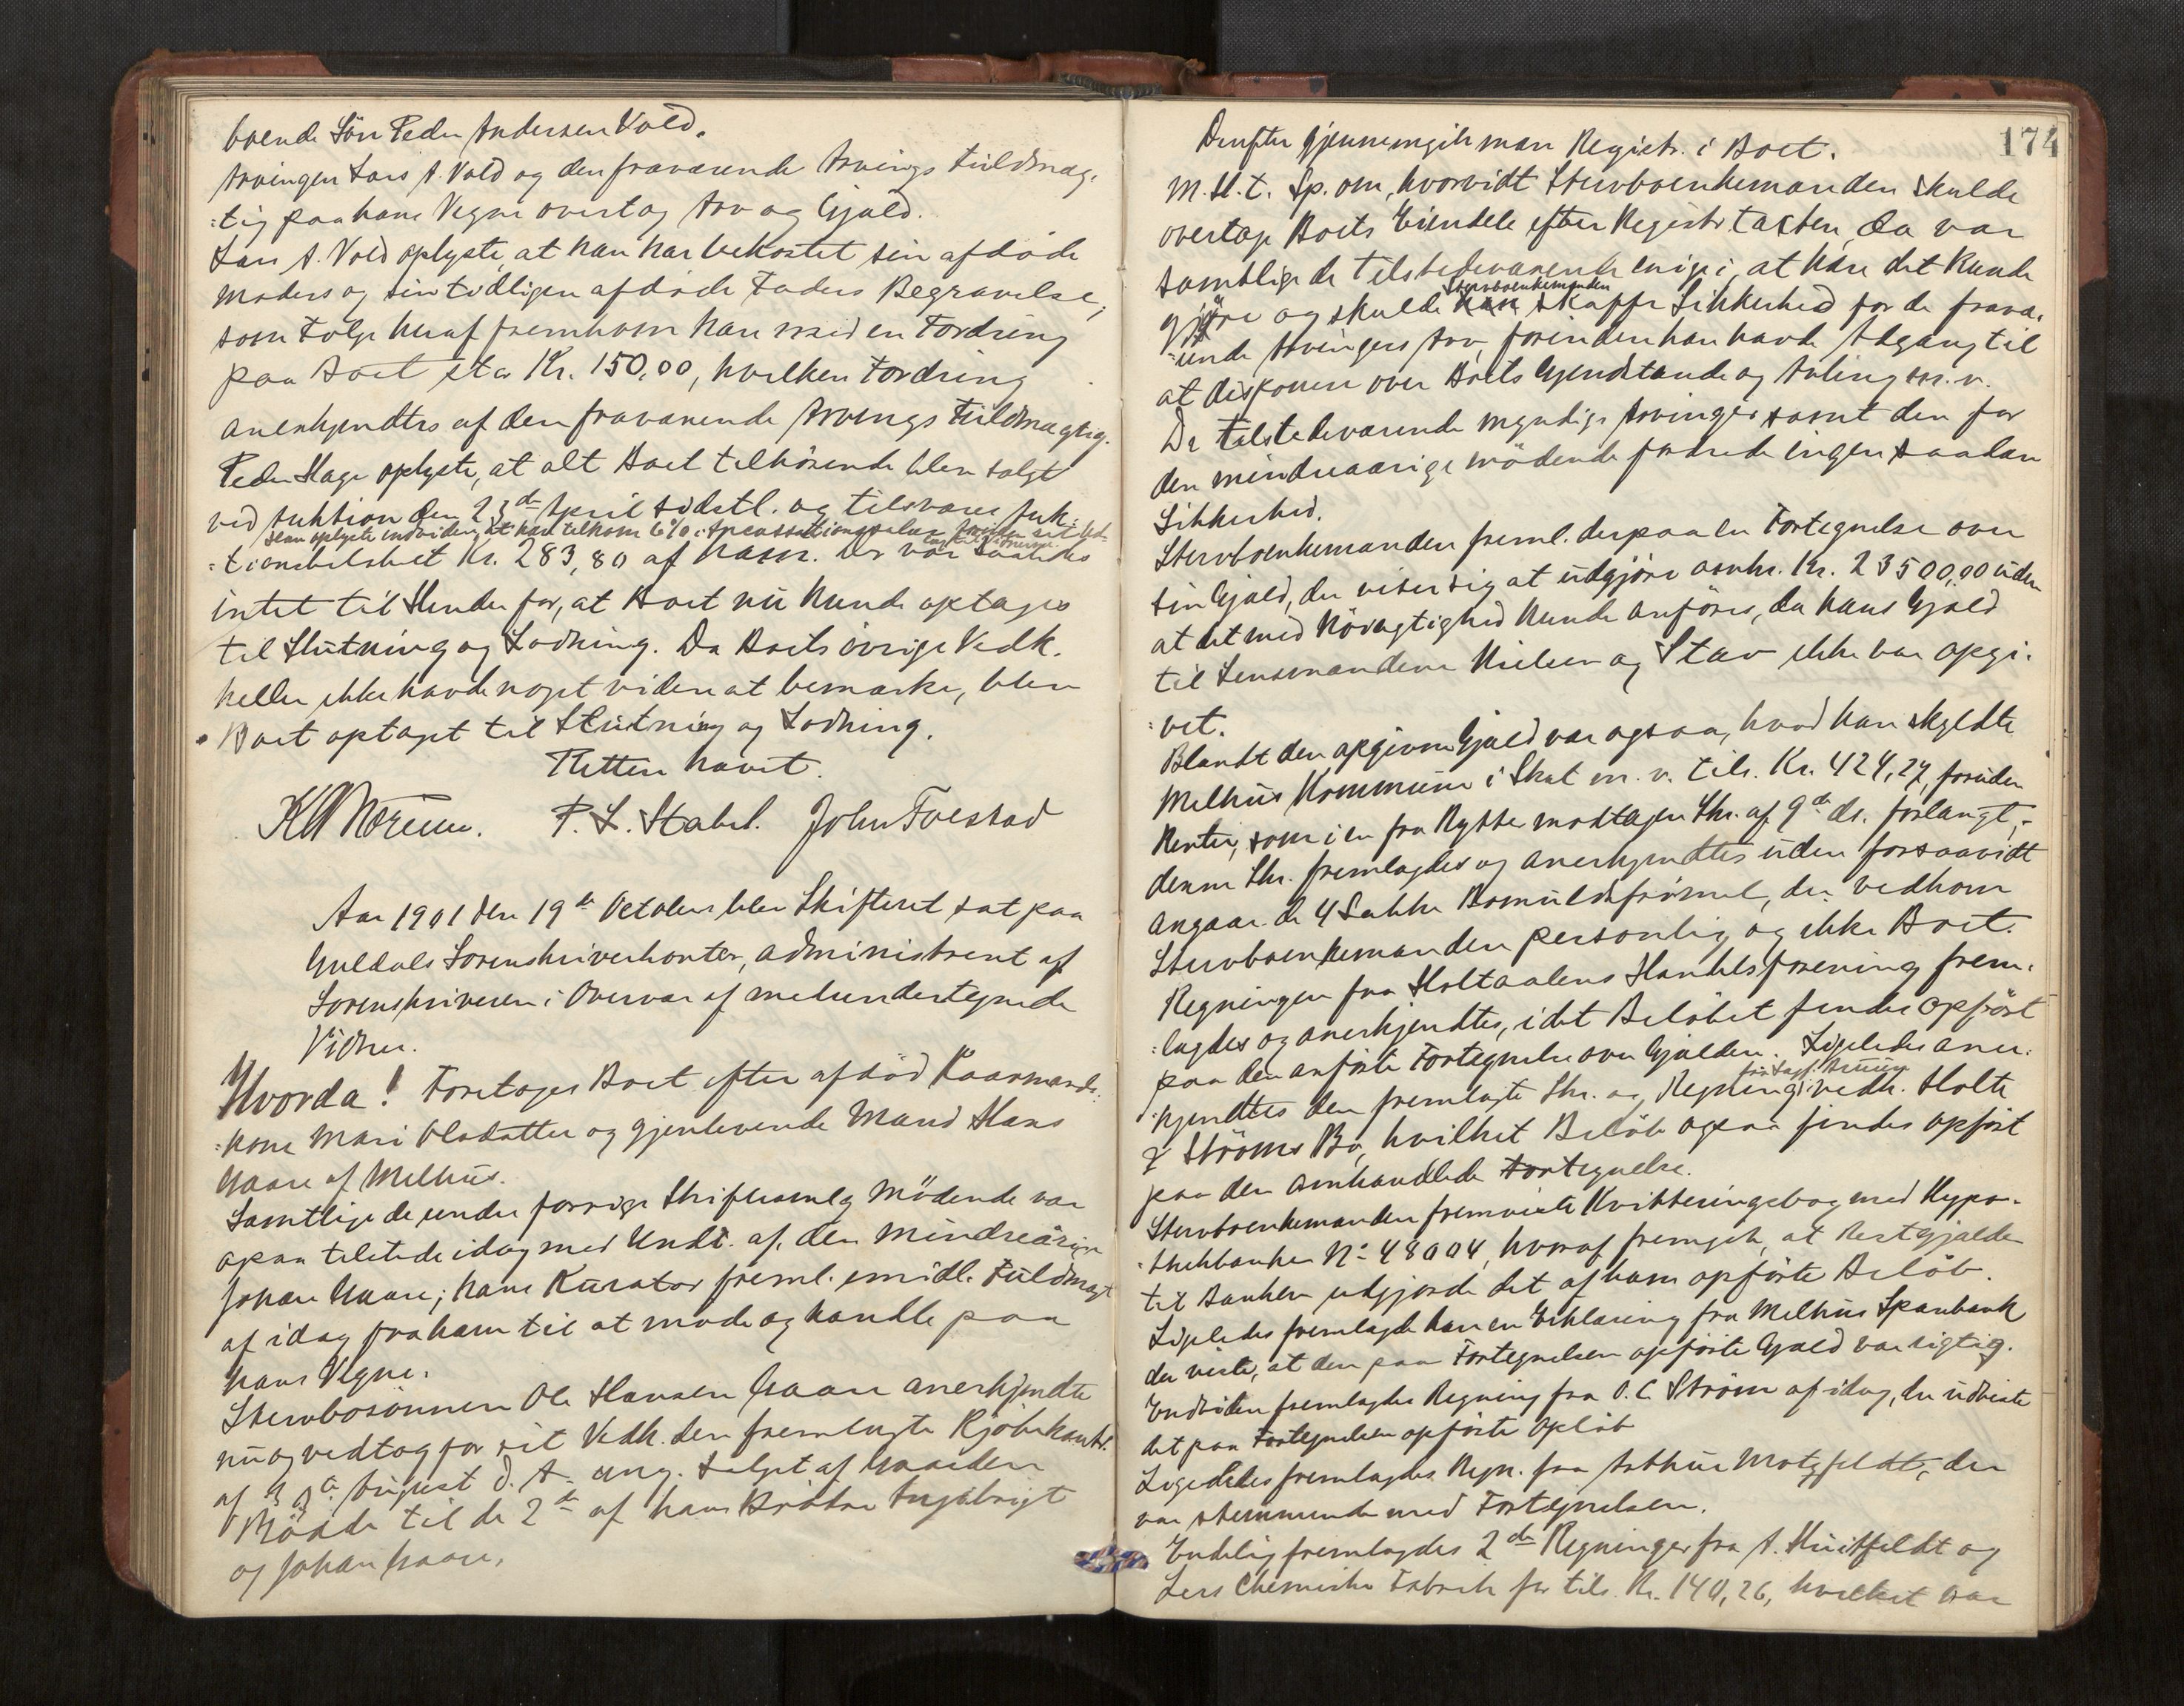 boende Søn Peder Andersen Vold.
Arvingen Lars A. Vold og den fraværende Arvings Fuldmæg-
=tig paa hans Vegne overtog Arv og Gjæld.
Lars A. Vold oplyste, at han har bekostet sin afdøde
Moders og sin tidligere afdøde Faders Begravelse,
som Følge heraf fremkom han med en Fordring
paa Boet stor Kr. 150,00, hvilken Fordring
anerkjendtes af den fraværende Arvings Fuldmægtig.
Peder Hage oplyste, at alt Boet tilhørende blev solgt
ved Auktion den 23de April sidstl. og tilsvares Auk-
Han oplyste endvidere, at han tilkom 6% i foruden sit
=tionsbeløbet Kr. 283,80 af ham. Der var saaledes
intet til Hinder for, at Boet nu kunde optages
til Slutning og Lodning. Da Boets øvrige Vedk.
heller ikke havde noget videre at bemærke, blev
Boet optaget til Slutning og Lodning.
Retten hævet.
P. L. Stabel. John Foestad
Aar 1901 den 19de October blev Skifteret sat paa
Guldals Sorenskriverkontor, administreret af
Sorenskriveren i Overvær af medundertegnede
Vidner.
Hvorda! Foretoges Boet efter afdød Kaarmands-
=kone Mari Olsdatter og gjenlevende Mand Hans
Gaare af Melhus.
Samtlige de under forrige Skiftesamlg mødende var
ogsaa tilstede idag med Undt. af den mindreårige
Johan Gaare; hans Kurator freml. imidl. Fuldmagt
af idag fra ham til at møde og handle paa
hans Vegne.
Stervbosønnen Ole Hansen Gaare anerkjendte
nu og vedtog for sit Vedk. den fremlagte Kjøbekontr.
af August d. A. ang. Salget af Gaarden
til de 2de af hans Brødre Ingebrigt
og Johan Gaare.
174
Derefter gjennemgik man Registr. i Boet.
M. H. t. Sp. om, hvorvidt Stervboenkemanden skulde
overtage Boets Eiendele efter Registr taxten, da var
samtlige de tilstedeværende enige i, at han det kunde
Stervboenkemanden
gjøre og skulde han skaffe Sikkerhed for de fravæ-
=rende Arvingers Arv, forinden han havde Adgang til
at disponere over Boets Gjenstande og Avling m. v.
De tilstedeværende myndige Arvinger samt den for
den mindreaarige mødende fordrede ingen saadan
Sikkerhed.
Stervboenkemanden freml. derpaa en Fortegnelse over
sin Gjæld, der viser sig at udgjøre omkr. Kr. 23500,00 uden
at det med Nøiagtighed kunde anføres, da hans Gjæld
til Lensmændene Nielsen og Stav ikke var opgi-
=vet.
Blandt den opgivne Gjæld var ogsaa, hvad han skyldte
Melhus Kommune i Skat m. v. tils. Kr. 424,27, foruden
Renter, som i en fra Rytter modtagen Skr. af 9de ds. forlangt,-
denne Skr. fremlagdes og anerkjendtes uden forsaavidt
angaar de 4 Sække Bomuldsfrømel, der vedkom
Stervboenkemanden personlig og ikke Boet.
Regningen fra Holtaalens Handelsforening frem-
=lagdes og anerkjendtes, idet Beløbet findes opført
paa den anførte Fortegnelse over Gjælden. Ligeledes aner-
fra Sagf.
=kjendtes den fremlagte Skr. og Regning vedk. Holte
& Strøms Bo, hvilket Beløb ogsaa findes opført
paa den omhandlede Fortegnelse.
Stervboenkemanden fremviste Kvitteringsbog med Hypo-
=thekbanken No 48004, hvoraf fremgik, at Restgjælden
til Banken udgjorde det af ham opførte Beløb.
Ligeledes fremlagde han en Erklæring fra Melhus Sparebank
der viste, at den paa Fortegnelsen opførte Gjæld var rigtig.
Endvidere fremlagdes Regning fra O. C. Strøm af idag, der udviste
det paa Fortegnelsen opførte Opløb
Ligeledes fremlagdes Regn. fra Arthur Motzfeldt, der
var stemmende med Fortegnelsen.
Endelig fremlagdes 2de Regninger fra A. Huitfeldt og
Lers Chemiske Fabrik for tils. Kr. 140,26, hvilket var